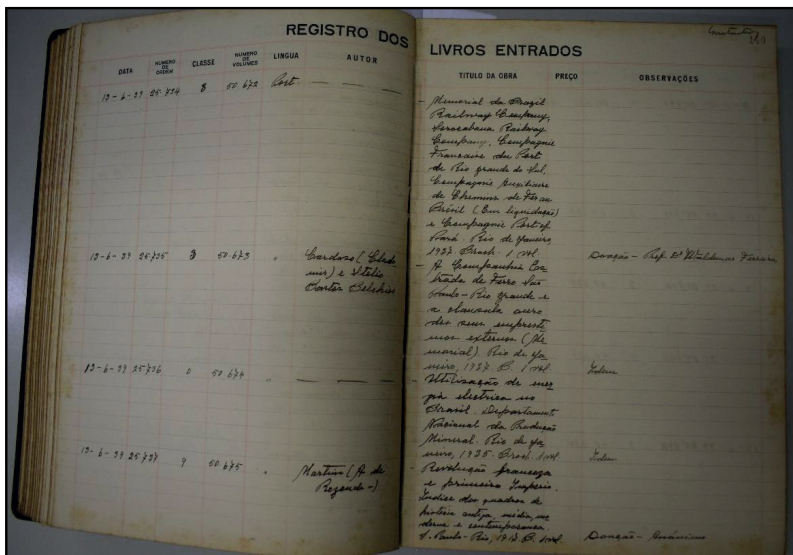 REGISTRO DOS LIVROS ENTRADOS
DATA NUMERO DE ORDEM CLASSE NUMERO DE VOLUMES LINGUA AUTOR TITULO DA OBRA PREÇO OBSERVAÇÕES
13-6-39 25.734 8 50.672 Port.
Memorial da Brazil
Railway Company,
Sorocabana Railway
Company, Compagnie
Francaise du Port
de Rio grande do Sul,
Compagnie Auxiliaire
de Chemins de Fer au
Brésil (Em liquidação)
e Compagnie Port of
Pará. Rio de Janeiro,
1937. Broch. 1 vol.
13-6-39 25.735 8 50.673 " Cardoso (
) e
Cortez
Doação - Prof. Dr. Waldemar Ferreira
- A Companhia Es-
trada de Ferro São
Paulo - Rio grande e
a clausula ouro
dos seus empresti-
mos externos (Me-
morial). Rio de Ja-
neiro, 1937. B. 1 vol.
Idem
13-6-39 25.736 50.674 "
- Utilização de ener-
gia electrica no
Brasil. Departamento
Nacional da Producção
Mineral. Rio de Ja-
neiro, 1935. Broch. 1 vol.
Idem
13-6-39 25.737 9 50.675 " Martins (A. de
Rezende-)
- Revolução franceza
e primeiro Imperio.
Indice dos quadros de
historia antiga, média, mo-
derna e contemporanea.
S. Paulo - Rio, 1917. B. 1 vol.
Doação - Anónimo